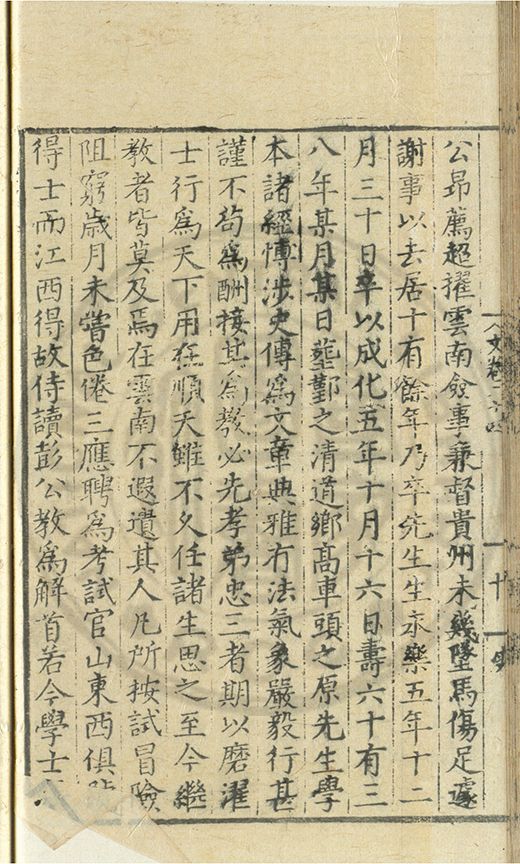 公昂薦超擢雲南僉事兼督貴州未幾墜馬傷足遽
謝事以去居十有餘年乃卒先生生永樂五年十二
月三十日卒以成化五年十月十六日壽六十有三
八年某月某日塟鄞之清道鄉高車頭之原先生學
本諸經博涉史傳爲文章典雅有法氣象嚴毅行甚
謹不茍爲酬接其爲教必先孝弟忠三者期以磨濯
士行爲天下用在順天雖不久任諸生思之至今繼
教者皆莫及焉在雲南不遐遺其人凡所按試冒險
阻窮歲月未嘗色倦三應聘爲考試官山東西俱
得士而江西得故侍讀彭公教爲解首若今學士
文卷
十